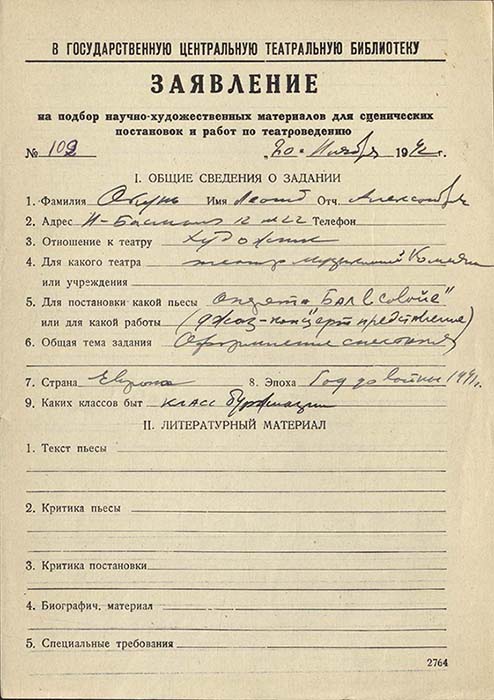 В ГОСУДАРСТВЕННУЮ ЦЕНТРАЛЬНУЮ ТЕАТРАЛЬНУЮ БИБЛИОТЕКУ
ЗАЯВЛЕНИЕ
на подбор научно-художественных материалов для сценических
постановок и работ по театроведению
№ 109 „20" Ноября 1942 г.
I. ОБЩИЕ СВЕДЕНИЯ О ЗАДАНИИ
1. Фамилия Окунь Имя Леонид Отч. Александр
2. Адрес 12 Телефон
3. Отношение к театру Художник
4. Для какого театра театр Музыкальной Комедии
или учреждения
5. Для постановки какой пьесы Оперетта „Бал в Савойе"
или для какой работы (джаз-концерт представление)
6. Общая тема задания Оформление спектакля
7. Страна Европа 8. Эпоха Год до войны 1941 г.
9. Каких классов быт класс буржуазии
II. ЛИТЕРАТУРНЫЙ МАТЕРИАЛ
1. Текст пьесы
2. Критика пьесы
3. Критика постановки
4. Биографич. материал
5. Специальные требования
2764